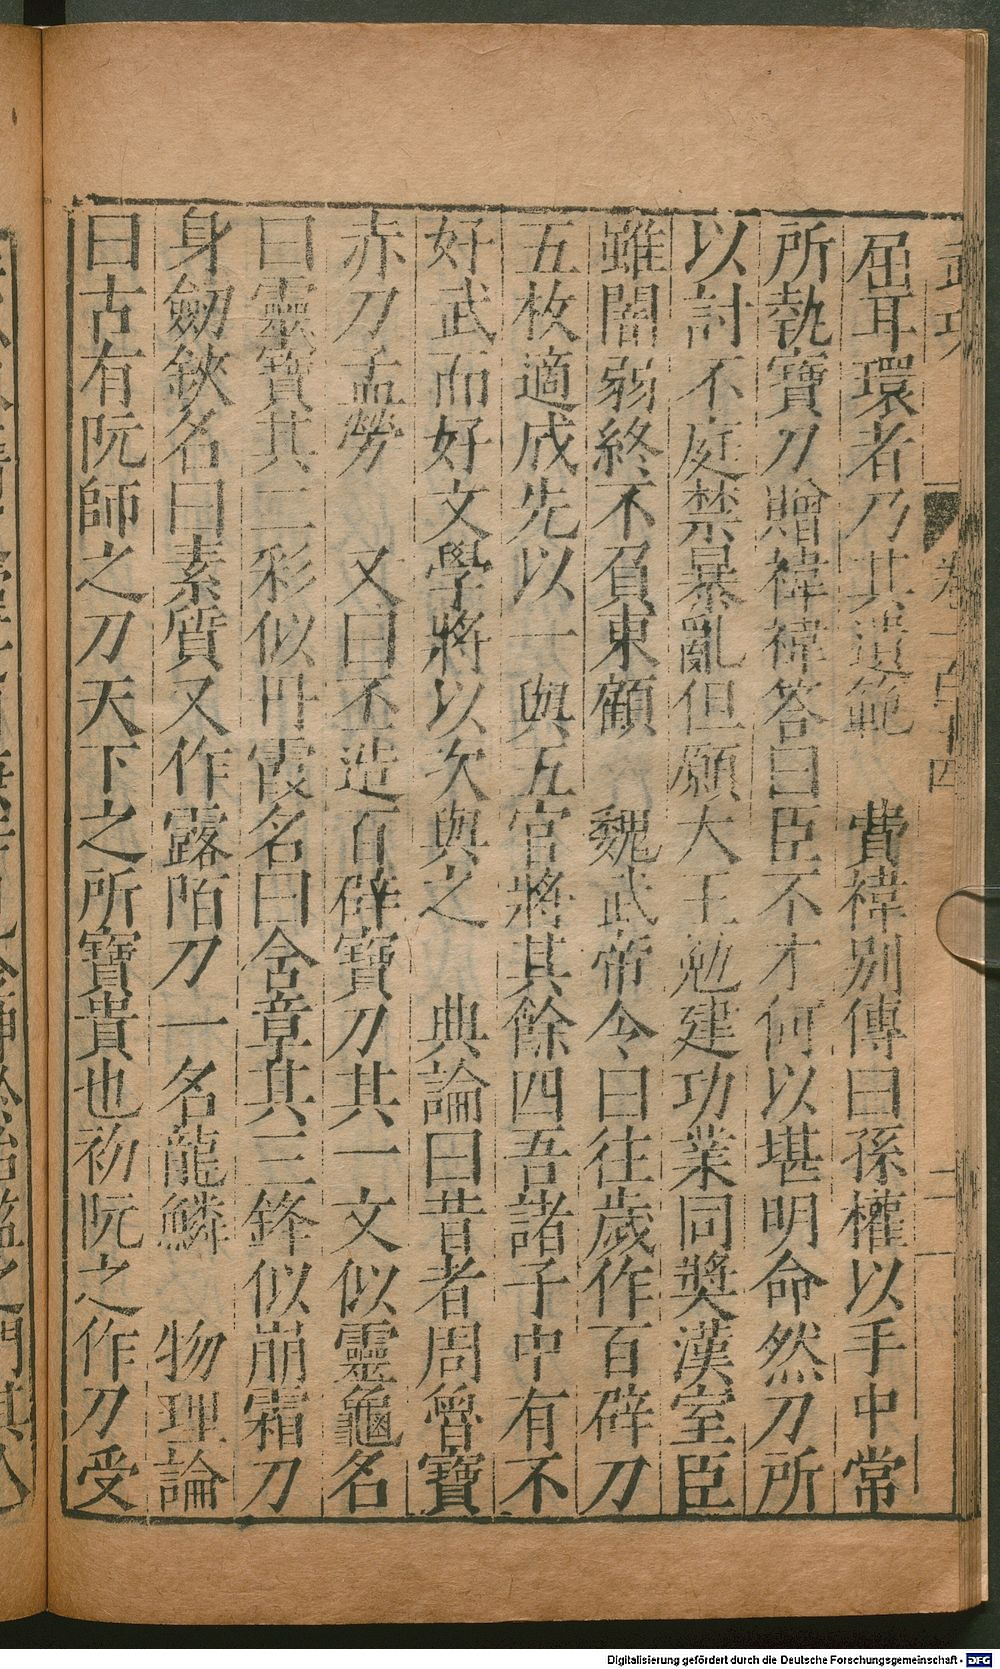 屈耳環者乃其遺範　費禕別傳曰孫權以手中常
所執寶刀贈禕禕答曰臣不才何以堪明命然刀所
以討不庭禁暴亂但願大王勉建功業同奬漢室臣
雖闇弱終不負東顧　魏武帝令曰往歲作百辟刀
五枚適成先以一與五官將其餘四吾諸子中有不
好武而好文學將以次與之　典論曰昔者周魯寶
赤刀孟勞　又曰丕造百辟寶刀其一文似靈龜名
曰靈寶其二彩似丹霞名曰含章其三鋒似崩霜刀
身劒鋏名曰素質又作露陌刀一名龍鱗　物理論
曰古有阮師之刀天下之所寶貴也初阮之作刀受
卷一百十四
二
Digitalisierung gefördert durch die Deutsche Forschungsgemeinschaft - DFG